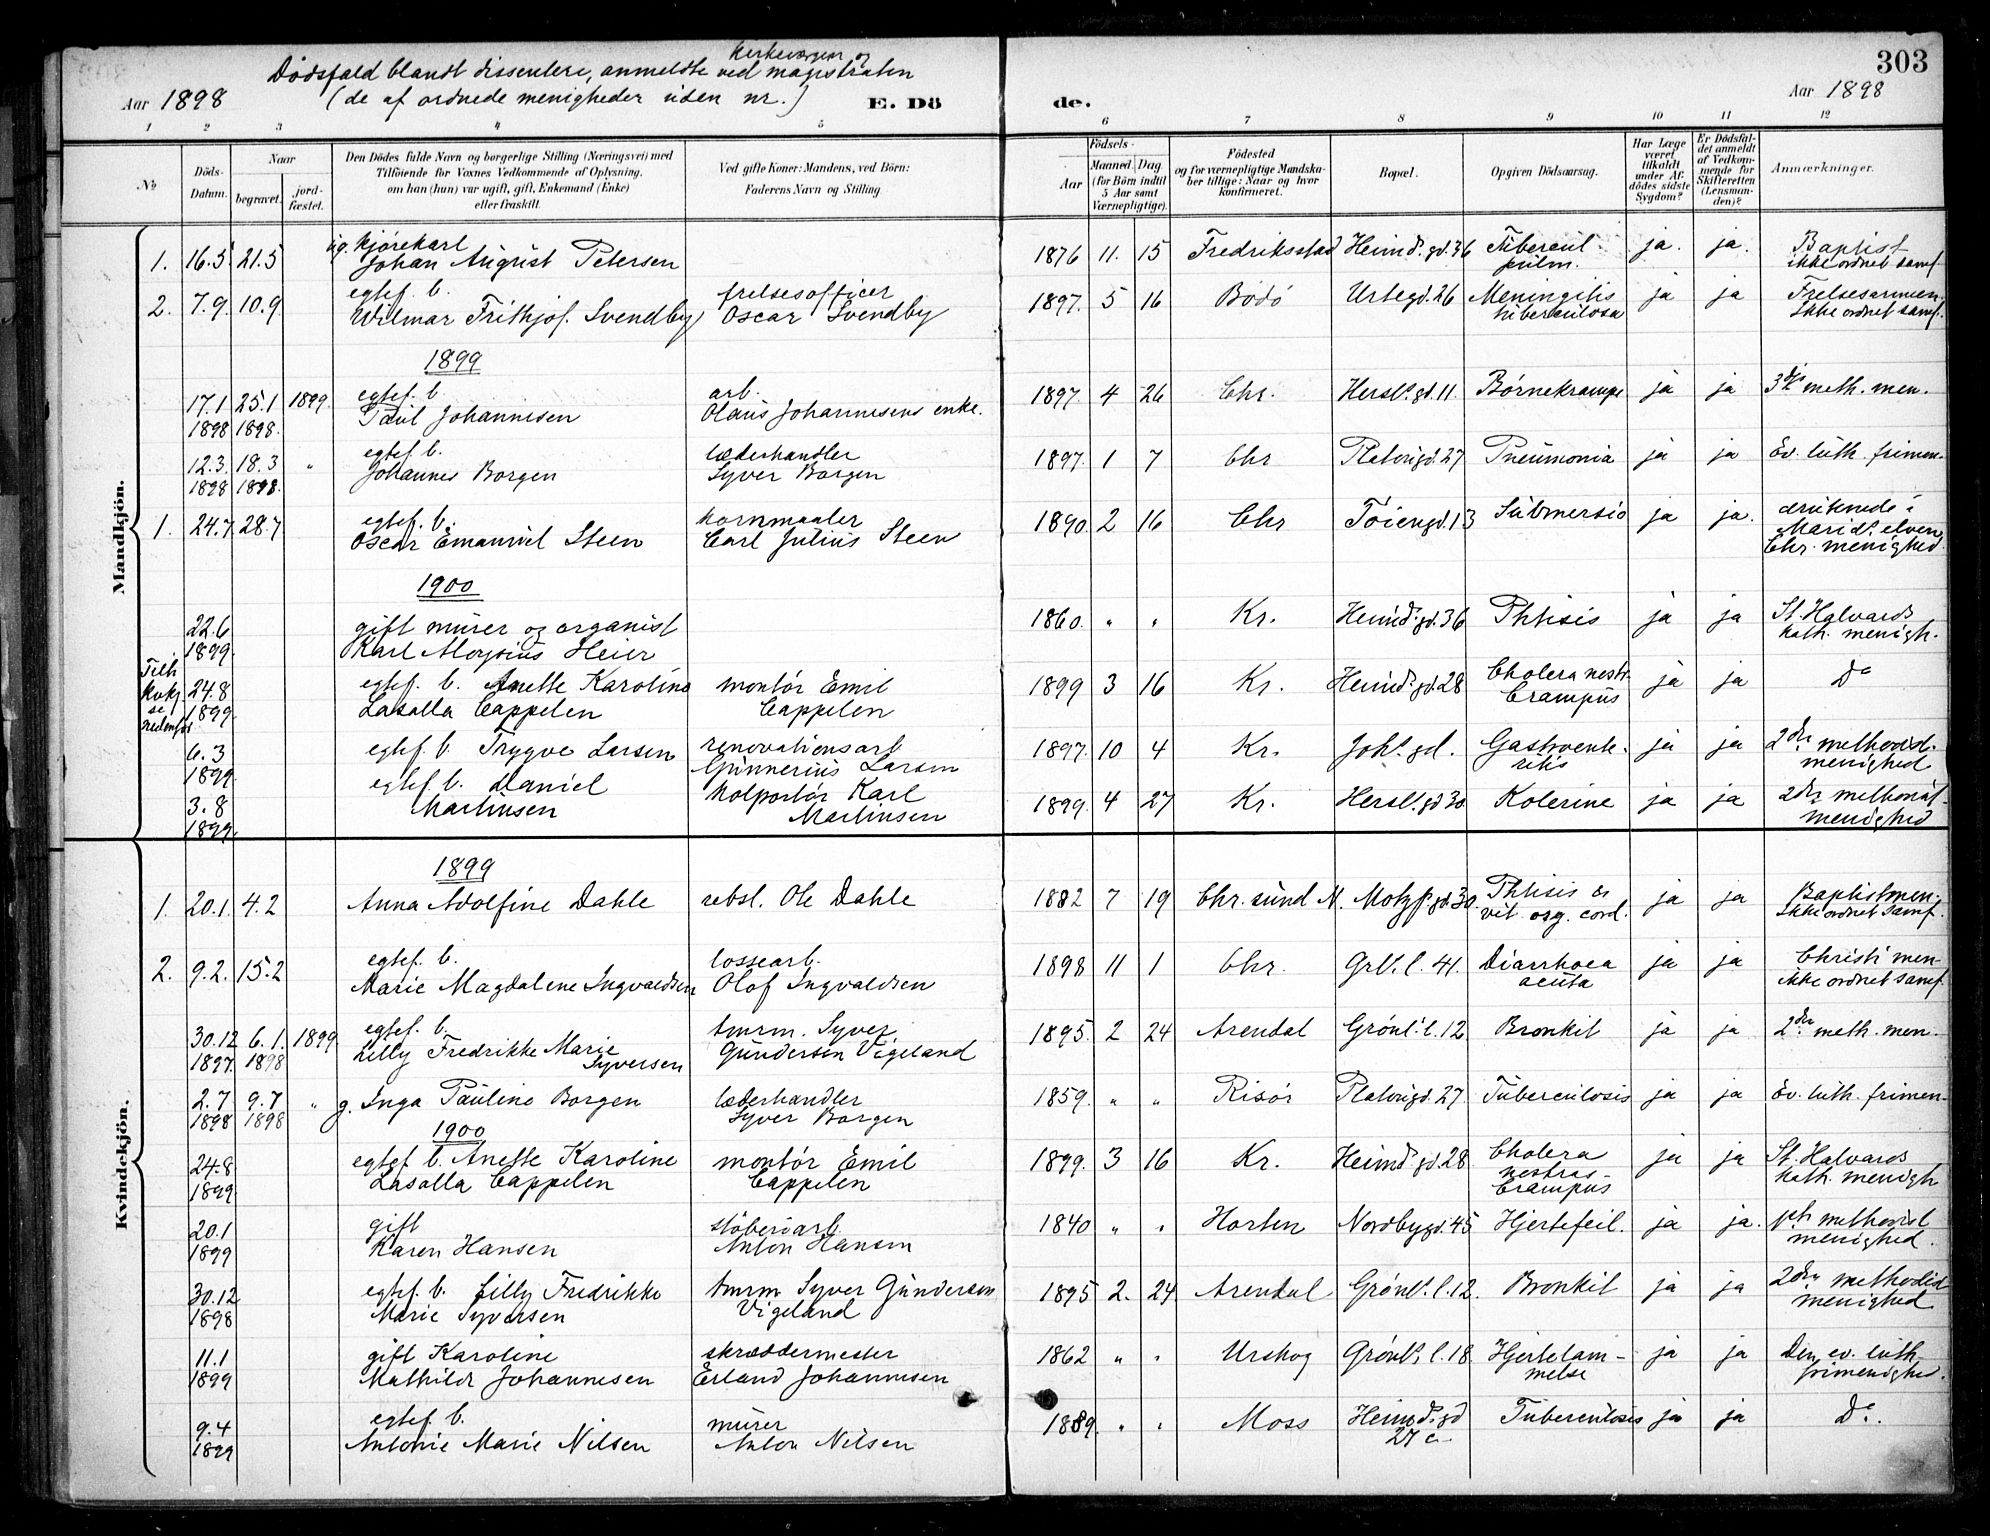 303
kirkevergen og
Dødsfald blandt dissentere, anmeldte ved magistraten
Aar 1898 (de af ordnede menigheder uden nr.) E. Dö de. Aar 1898
1 2 3 4 5 6 7 8 9 10 11 12
No
Döds-Datum.
Naar
begravet.
jord-fæstet.
Den Dödes fulde Navn og borgerlige Stilling (Næringsvei) med
Tilföiende for Voxnes Vedkommende af Oplysning,
om han (hun) var ugift, gift, Enkemand (Enke)
eller fraskilt.
Ved gifte Koner: Mandens, ved Börn:
Faderens Navn og Stilling
Födsels-
Aar
Maaned Dag
(for Börn indtil
5 Aar samt
Værnepligtige).
Födested
og for værnepligtige Mandska-
ber tillige: Naar og hvor
konfirmeret.
Bopæl.
Opgiven Dödsaarsag.
Har Læge
været
tilkaldt
under Af-
dödes sidste
Sygdom?
Er Dödsfal-
det anmeldt
af Vedkom-
mende for
Skifteretten
(Lensman-
den)?
Anmærkninger.
Mandkjön.
1. 16.5 21.5 ug. kjørekarl Johan August Petersen 1876 11. 15 Fredriksstad Heimd. gd. 36 Tubercul. pulm. ja. ja. Baptist ikke ordnet samf.
2. 7.9. 10.9. egtef. b. Wilmar Frithjof Svendby frelsesofficer Oscar Svendby 1897. 5 16 Bodø Urtegd. 26 Meningitis tuberculosa ja ja Frelsesarmeen. ikke ordnet samf.
1899
17.1 1898 25.1 1898. 1899. egtef. b Paul Johannesen arb. Olaus Johannesens enke. 1897. 4 26 Chr. Hersl. gd. 11. Børnekrampe ja ja 3die meth. men.
12.3. 1898 18.3 1898. " egtef. b. Johannes Borgen læderhandler Syver Borgen 1897. 1 7 Chr Platougd. 27 Pneumonia ja ja Ev. luth. frimen.
1. 24.7 28.7 egtef. b. Oscar Emanuel Steen kornmaaler Carl Julius Steen 1890. 2 16 Chr Tøiengd. 13 Submersio ja ja. druknede i Marid. elven Chr. menighed
1900
22.6 1899. gift murer og organist Karl Aloysius Heier 1860. " " Kr. Heimd. gd. 36 Phtisis ja ja St. Halvards kath. menigh.
Tilh kvkj se nedenfor 24.8 1899. egtef. b. Anette Karoline Lasalla Cappelen montør Emil Cappelen 1899 3 16 Kr. Heimd. gd. 28 Cholera nestr. Crampus ja ja Do
6.3 1899. egtef. b. Trygve Larsen renovationsarb Gunnerius Larsen 1897. 10 4 Kr. Joh. gd. Gastroenteritis ja ja 2den methodist. menighed
3.8 1899. egtef. b. Daniel Martinsen kolportør Karl Martinsen 1899. 4 27 Kr. Hersl. gd 30. Kolerine ja ja 2den methodist. menighed
Kvindekjön.
1899
1. 20.1. 4.2 Anna Adolfine Dahle rebsl. Ole Dahle 1882 7 19 Chr. sund N. Motzf. gd. 30. Phtisis & vit. org. cord. ja ja Baptistmen. ikke ordnet samf.
2. 9.2. 15.2 egtef. b. Marie Magdalene Ingvaldsen lossearb. Olof Ingvaldsen 1898 11 1 Chr. Grl. l. 41. Diarrhoea acuta ja ja Christi men ikke ordnet samf.
30.12 1897. 6.1. 1898 1899 egtef. b. Lilly Fredrikke Marie Syversen tmrm. Syver Gundersen Vigeland 1895. 2 24 Arendal Grønl. l. 12 Bronkit ja ja 2den meth. men.
2.7 1898 9.7 1898 " g. Inga Pauline Borgen læderhandler Syver Borgen 1859. " " Risør Platougd. 27. Tuberculosis ja ja Ev. luth. frimen.
1900
24.8 1899. egtef b. Anette Karoline Lasalla Cappelen montør Emil Cappelen 1899. 3 16 Kr. Heimd. gd. 28. Cholera nostras- Crampus ja ja St. Halvards kath. menigh
20.1 1899 gift Karen Hansen støberiarb Anton Hansen 1840 " " Horten Nordbygd. 45 Hjertefeil. ja ja. 1ste methodist menighed.
30.12 1898 egtef. b. Lilly Fredrikke Marie Syversen tmrm Syver Gundersen Vigeland 1895 2. 24 Arendal Grønl. l. 12. Bronkit ja ja 2den methodist menighed
11.1 1899 gift Karoline Mathilde Johannesen skræddermester Erland Johannesen 1862 " " Urskog Grønl. l. 18. Hjertelammelse ja ja Den ev. luth. frimenighed.
9.4 1899 egtef. b. Antonie Marie Nilsen murer Anton Nilsen 1889. " " Moss Heimd. gd 27 c. Tuberculosis ja ja Do.